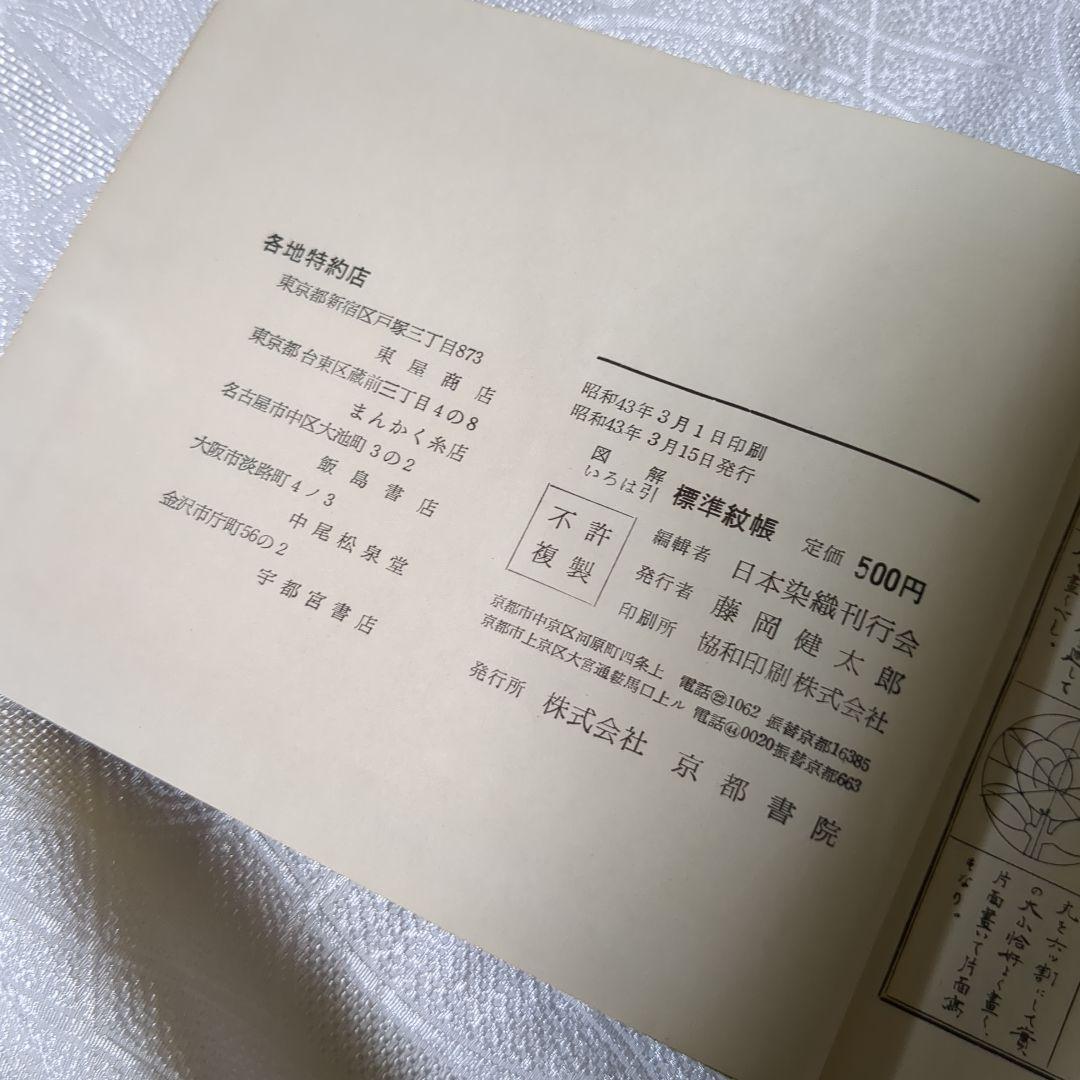 各地特約店
東京都新宿区戸塚三丁目873
東屋商店
東京都台東区蔵前三丁目4の8
まんかく糸店
名古屋市中区大池町3の2
飯島書店
大阪市淡路町4ノ3
中尾松泉堂
金沢市庁町56の2
宇都宮書店
昭和43年3月1日印刷
昭和43年3月15日発行
図解
いろは引 標準紋帳 定価 500円
不許
複製
編輯者 日本染織刊行会
発行者 藤岡健太郎
印刷所 協和印刷株式会社
京都市中京区河原町四条上 電話㉒1062 振替京都16385
京都市上京区大宮通鞍馬口上ル 電話㊹0020振替京都663
発行所 株式会社 京都書院
丸を六ッ割にして實
の大小恰好よく畫く、
片面畫いて片面寫
もなり。